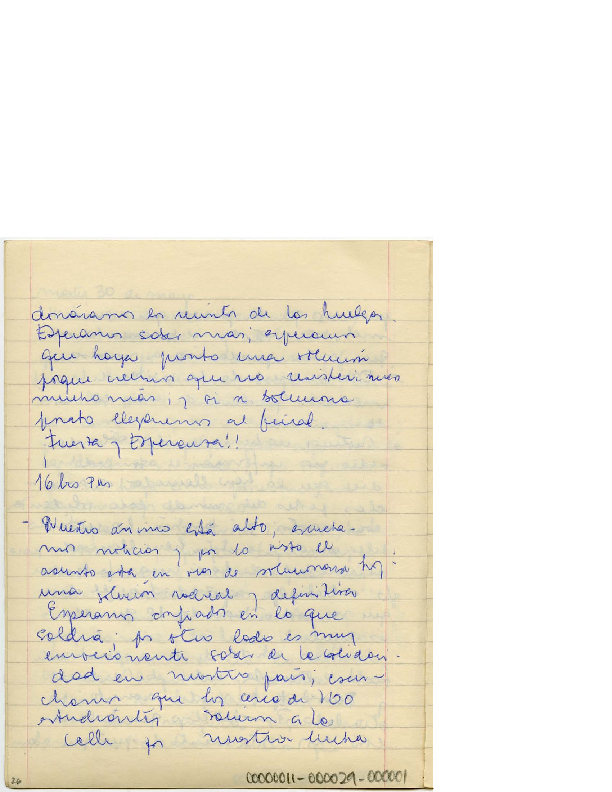 donáramos los recintos de las huelgas.
Esperamos saber más; esperamos
que haya pronto una solución
porque creemos que no resistiremos
mucho más; y si se soluciona
pronto llegaremos al final.
Fuerza y Esperanza!!
16 hrs PM
- Nuestro ánimo está alto, escucha-
mos noticias y por lo visto el
asunto está en vías de solucionarse hoy:
una solución radical y definitiva
Esperamos confiados en lo que
saldrá; por otro lado es muy
emocionante saber de la solidari-
dad en nuestro país; escu-
chamos que los cerca de 100
estudiantes salieron a la
calle por nuestra lucha
26
00000011-000029-000001